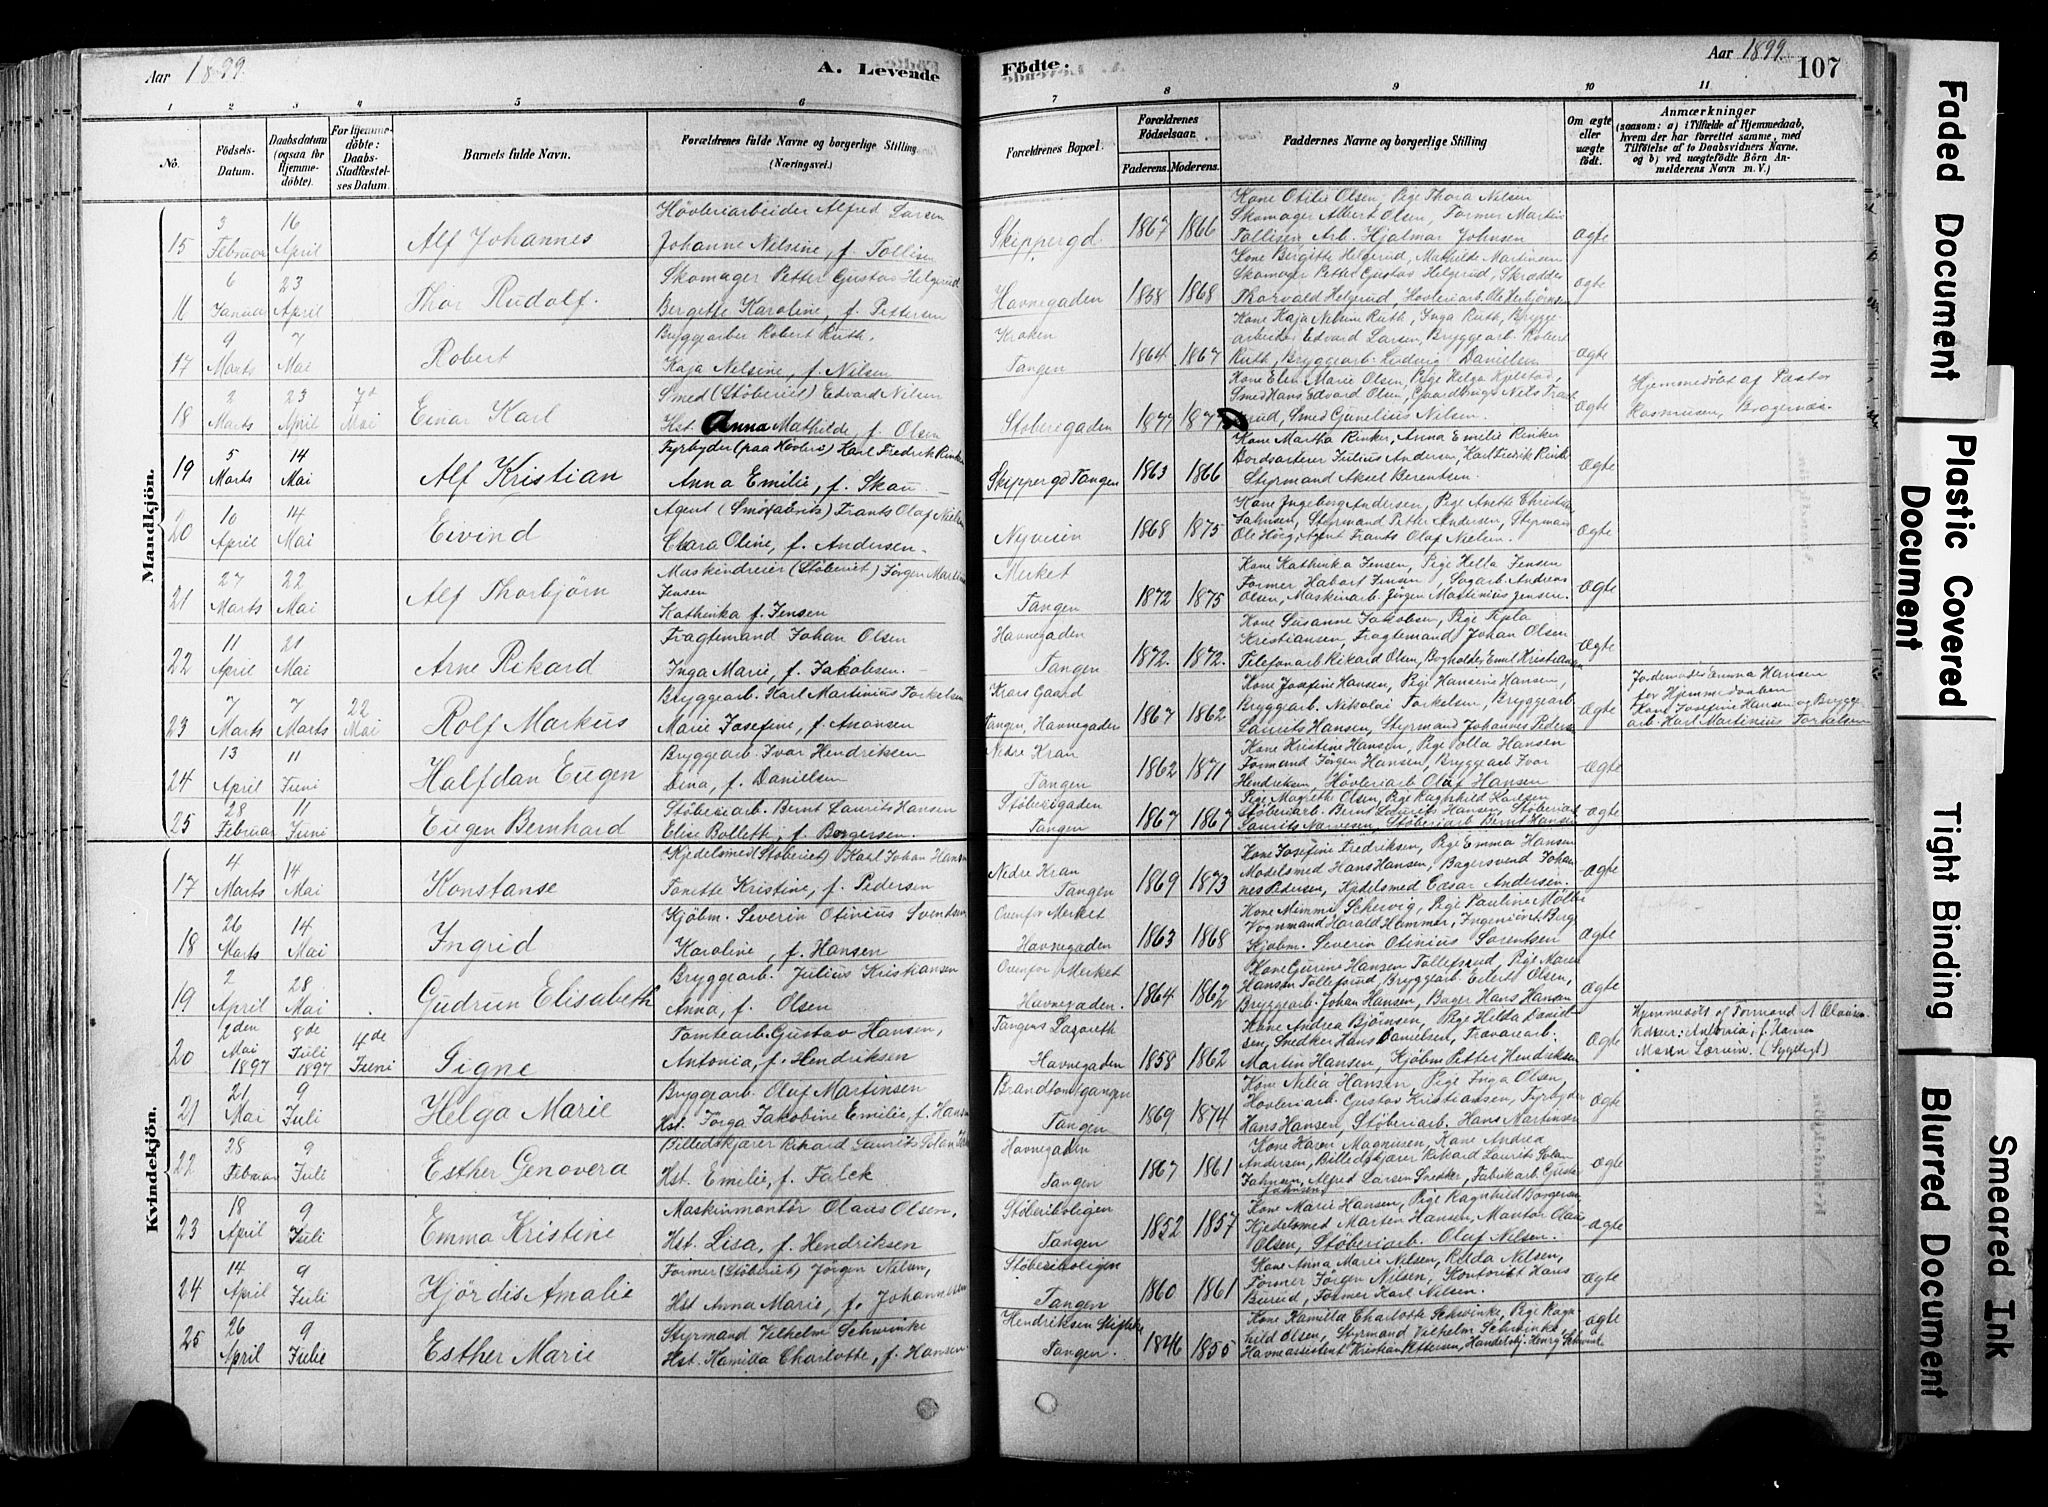 Aar 1899.
A. Levende
Födte.
Aar 1899.
107
1 2 3 4 5 6 7 8 9 10 11
No.
Födsels-Datum.
Daabsdatum (ogsaa for Hjemmedöbte).
For hjemmedöbte: Daabs-Stadfæstelses Datum.
Barnets fulde Navn.
Forældrenes fulde Navne og borgerlige Stilling. (Næringsvei.)
Forældrenes Bopæl.
Forældrenes Födselsaar.
Faderens. Moderens.
Faddernes Navne og borgerlige Stilling
Om ægte eller uægte födt.
Anmærkninger
(saasom: a) i Tilfælde af Hjemmedaab, hvem der har forrettet samme, med Tilföielse af to Daabsvidners Navne, og b) ved uægtefödte Börn Anmelderens Navn m. V.)
Mandkjön.
15 3 Februar 16 April Alf Johannes Hövleriarbeider Alfred Larsen Johanne Nilsine, f. Tollisen Skippergd. 1867 1866 Kone Otilie Olsen, Pige Thora Nilsen Skomager Albert Olsen, Former Martin Tollisen, Arb. Hjalmar Johnsen ægte
16 6 Januar 23 April Thor Rudolf. Skomager Petter Gustav Helgerud Bergette Karoline, f. Pettersen Havnegaden 1858 1868 Kone Bergitte Helgerud, Mathilde Martinsen Skomager Petter Gustav Helgerud, Skrædder Thorvald Helgerud, Hövleriarb. Ole ægte
17 9 Marts 7 Mai Robert Bryggearber Robert Ruth, Kaja Nilsine, f. Nilsen Kroken Tangen 1864 1867 Kone Kaja Nilsine Ruth, Inga Ruth, Bryggearbeider Edvard Larsen, Bryggearb. Robert Ruth, Bryggearb. Ludvig Danielsen ægte
18 2 Marts 23 April 7d Mai Einar Karl Smed (Støberiet) Edvard Nilsen Hst. Anna Mathilde, f. Olsen Støberigaden 1877 1877 Kone Elen Marie Olsen, Pige Helga Smed Hans Edvard Olsen, Smed Gunelius Nilsen. ægte Hjemmedøbt af Pastor Rasmusen, Bragernæs.
19 5 Marts 14 Mai Alf Kristian Fyrbyder (paa Høvleri) Karl Fredrik Rinker Anna Emilie, f. Skau Skippergd Tangen 1863 1866 Kone Martha Rinker, Anna Emilie Rinker Bordsorterer Julius Andersen, Karl Fredrik Rinker Styrmand Aksel Berentsen. ægte
20 10 April 14 Mai Eivind Agent Frants Olaf Nielsen Clara Oline, f. Andersen. Nyveien 1868 1875 Kone Ingeborg Andersen, Pige Anette Christine Styrmand Petter Andersen, Styrmand Ole Høeg, Agent Frants Olaf Nielsen. ægte
21 27 Marts 22 Mai Alf Thorbjørn Maskindreier (Støberiet) Jørgen Martin Jensen Kathinka f. Jensen Merket Tangen 1872 1875 Kone Kathinka Jensen, Pige Hella Jensen Former Habart Jensen, Sagarb. Andreas Olsen, Maskinarb. Jørgen Martinius Jensen. ægte
22 11 April 21 Mai Arne Rikard Fragtemand Johan Olsen Inga Marie, f. Jakobsen. Havnegaden Tangen 1872. 1872. Kone Susanne Jakobsen, Pige Kristiansen, Fragtemand Johan Olsen Telefonarb Rikard Olsen, Bogholder Emil Kristiansen ægte
23 7 Marts 7 Marts 22 Mai Rolf Markus Bryggearb. Karl Martinius Torkelsen Marie Josefine, f. Anansen Krars Gaard Tangen, Havnegaden 1867 1862 Kone Josefine Hansen, Pige Hansine Hansen, Bryggearb. Nikolai Torkelsen, Bryggearb. Laurits Hansen, Styrmand Johannes Pedersen ægte Jordemoder Emma Hansen for Hjemmedaaben Kone Josefine Hansen og Bryggearb. Karl Martinius Torkelsen
24 13 April 11 Juni Halfdan Eugen Bryggearb Ivar Hendriksen Lina, f. Danielsen Nedre Kran Tangen 1862 1871 Kone Kristine Hansen, Pige Polla Hansen Formand Jørgen Hansen, Bryggearb Ivar Hendriksen, Høvleriarb Olaf Hansen ægte
25 28 Februar 11 Juni Eugen Bernhard Støberiarb. Bernt Laurits Hansen Elise Bollett, f. Borgersen. Støberigaden Tangen 1867 1867 Pige Magrethe Olsen, Pige Ragnhild Karlsen Støberiarb. Bernt Laurits Hansen, Støberiarb Laurits Narvesen, Støberiarb Bernt Hansen ægte
Kvindekjön.
17 4 Marts 14 Mai Konstanse Kjedelsmed (Støberiet) Karl Johan Hansen Tonette Kristine, f. Pedersen Nedre Kran Tangen 1869 1873 Kone Josefine Fredriksen, Pige Emma Hansen Modelsmed Hans Hansen, Bagersvend Johannes Pedersen, Kjedelsmed Cæsar Andersen. ægte
18 26 Marts 14 Mai Ingrid Kjøbm. Severin Otinius Svendsen Karoline, f. Hansen Ovenfor Merket Havnegaden 1863 1868 Kone Mimmi Schervig, Pige Pauline Vognmand Harald Hammer, Ingeniør Kjøbm. Severin Otinius ægte
19 2 April 28 Mai Gudrun Elisabeth Bryggearb. Julius Kristiansen Anna, f. Olsen Ovenfor Merket Havnegaden. 1864 1862 Kone Gurine Hansen Tollefsrud, Pige Marie Hansen Tollefsrud, Bryggearb. Eilert Olsen, Bryggearb. Johan Hansen, Bager Hans Hansen ægte
20 2den Mai 1897 8de Juli 1897 4de Juni Signe Tomtearb. Gustav Hansen, Antonia, f. Hendriksen Tangens Lazareth Havnegaden 1858 1862 Kone Andrea Bjørnsen, Pige Hilda Davidsen, Snedker Hans Danielsen, Martin Hansen, Kjøbm Petter Hendriksen ægte Hjemmedøbt af Formand
21 21 Mai 9 Juli Helga Marie Bryggearb Olaf Martinsen Hst. Torga Jakobine Emilie, f. Hansen Tangen 1869 1874 Kone Nilia Hansen, Pige Inga Olsen, Høvleriarb. Gustav Kristiansen, Fyrbyder Hans Hansen, Støberiarb. Hans Martinsen ægte
22 28 Februar 9 Juli Esther Genovera Billedskjærer Rikard Laurits Hst. Emilie, f. Falck Havnegaden Tangen 1867 1861 Kone Karen Magnusen, Kone Andrea Andersen, Billedskjærer Rikard Laurits Alfred Larsen Snedker, Fabrikarb. Gustav Johnsen ægte
23 18 April 9 Juli Emma Kristine Maskinmontør Olaus Olsen, Hst. Lisa, f. Hendriksen Støberiboligen Tangen 1852 1857 Kone Marie Hansen, Pige Ragnhild Borgersen Kjedelsmed Marten Hansen, Montør Olaus Olsen, Støberiarb. Olaf Nilsen. ægte
24 14 April 9 Juli Hjørdis Amalie Former (Støberiet) Jørgen Nilsen, Hst Anna Marie, f. Johannesen Støberiboligen Tangen 1860 1861 Kone Anna Marie Nilsen, Hilda Nilsen, Former Jørgen Nilsen, Kontorist Hans Burud, Former Karl Nilsen. ægte
25 26 April 9 Julie Esther Marie Styrmand Vilhelm Schwinke Hst. Kamilla Charlotte, f. Hansen. Hendriksen Tangen. 1846 1855 Kone Kamilla Charlotte Schwinke, Pige Ragnhild Olsen, Styrmand Vilhelm Schwinke, Havneassistent Kristian Pettersen, Handelsbj. Henry Schwinke ægte
Faded Document
Plastic Covered Document
Tight Binding
Blurred Document
Smeared Ink